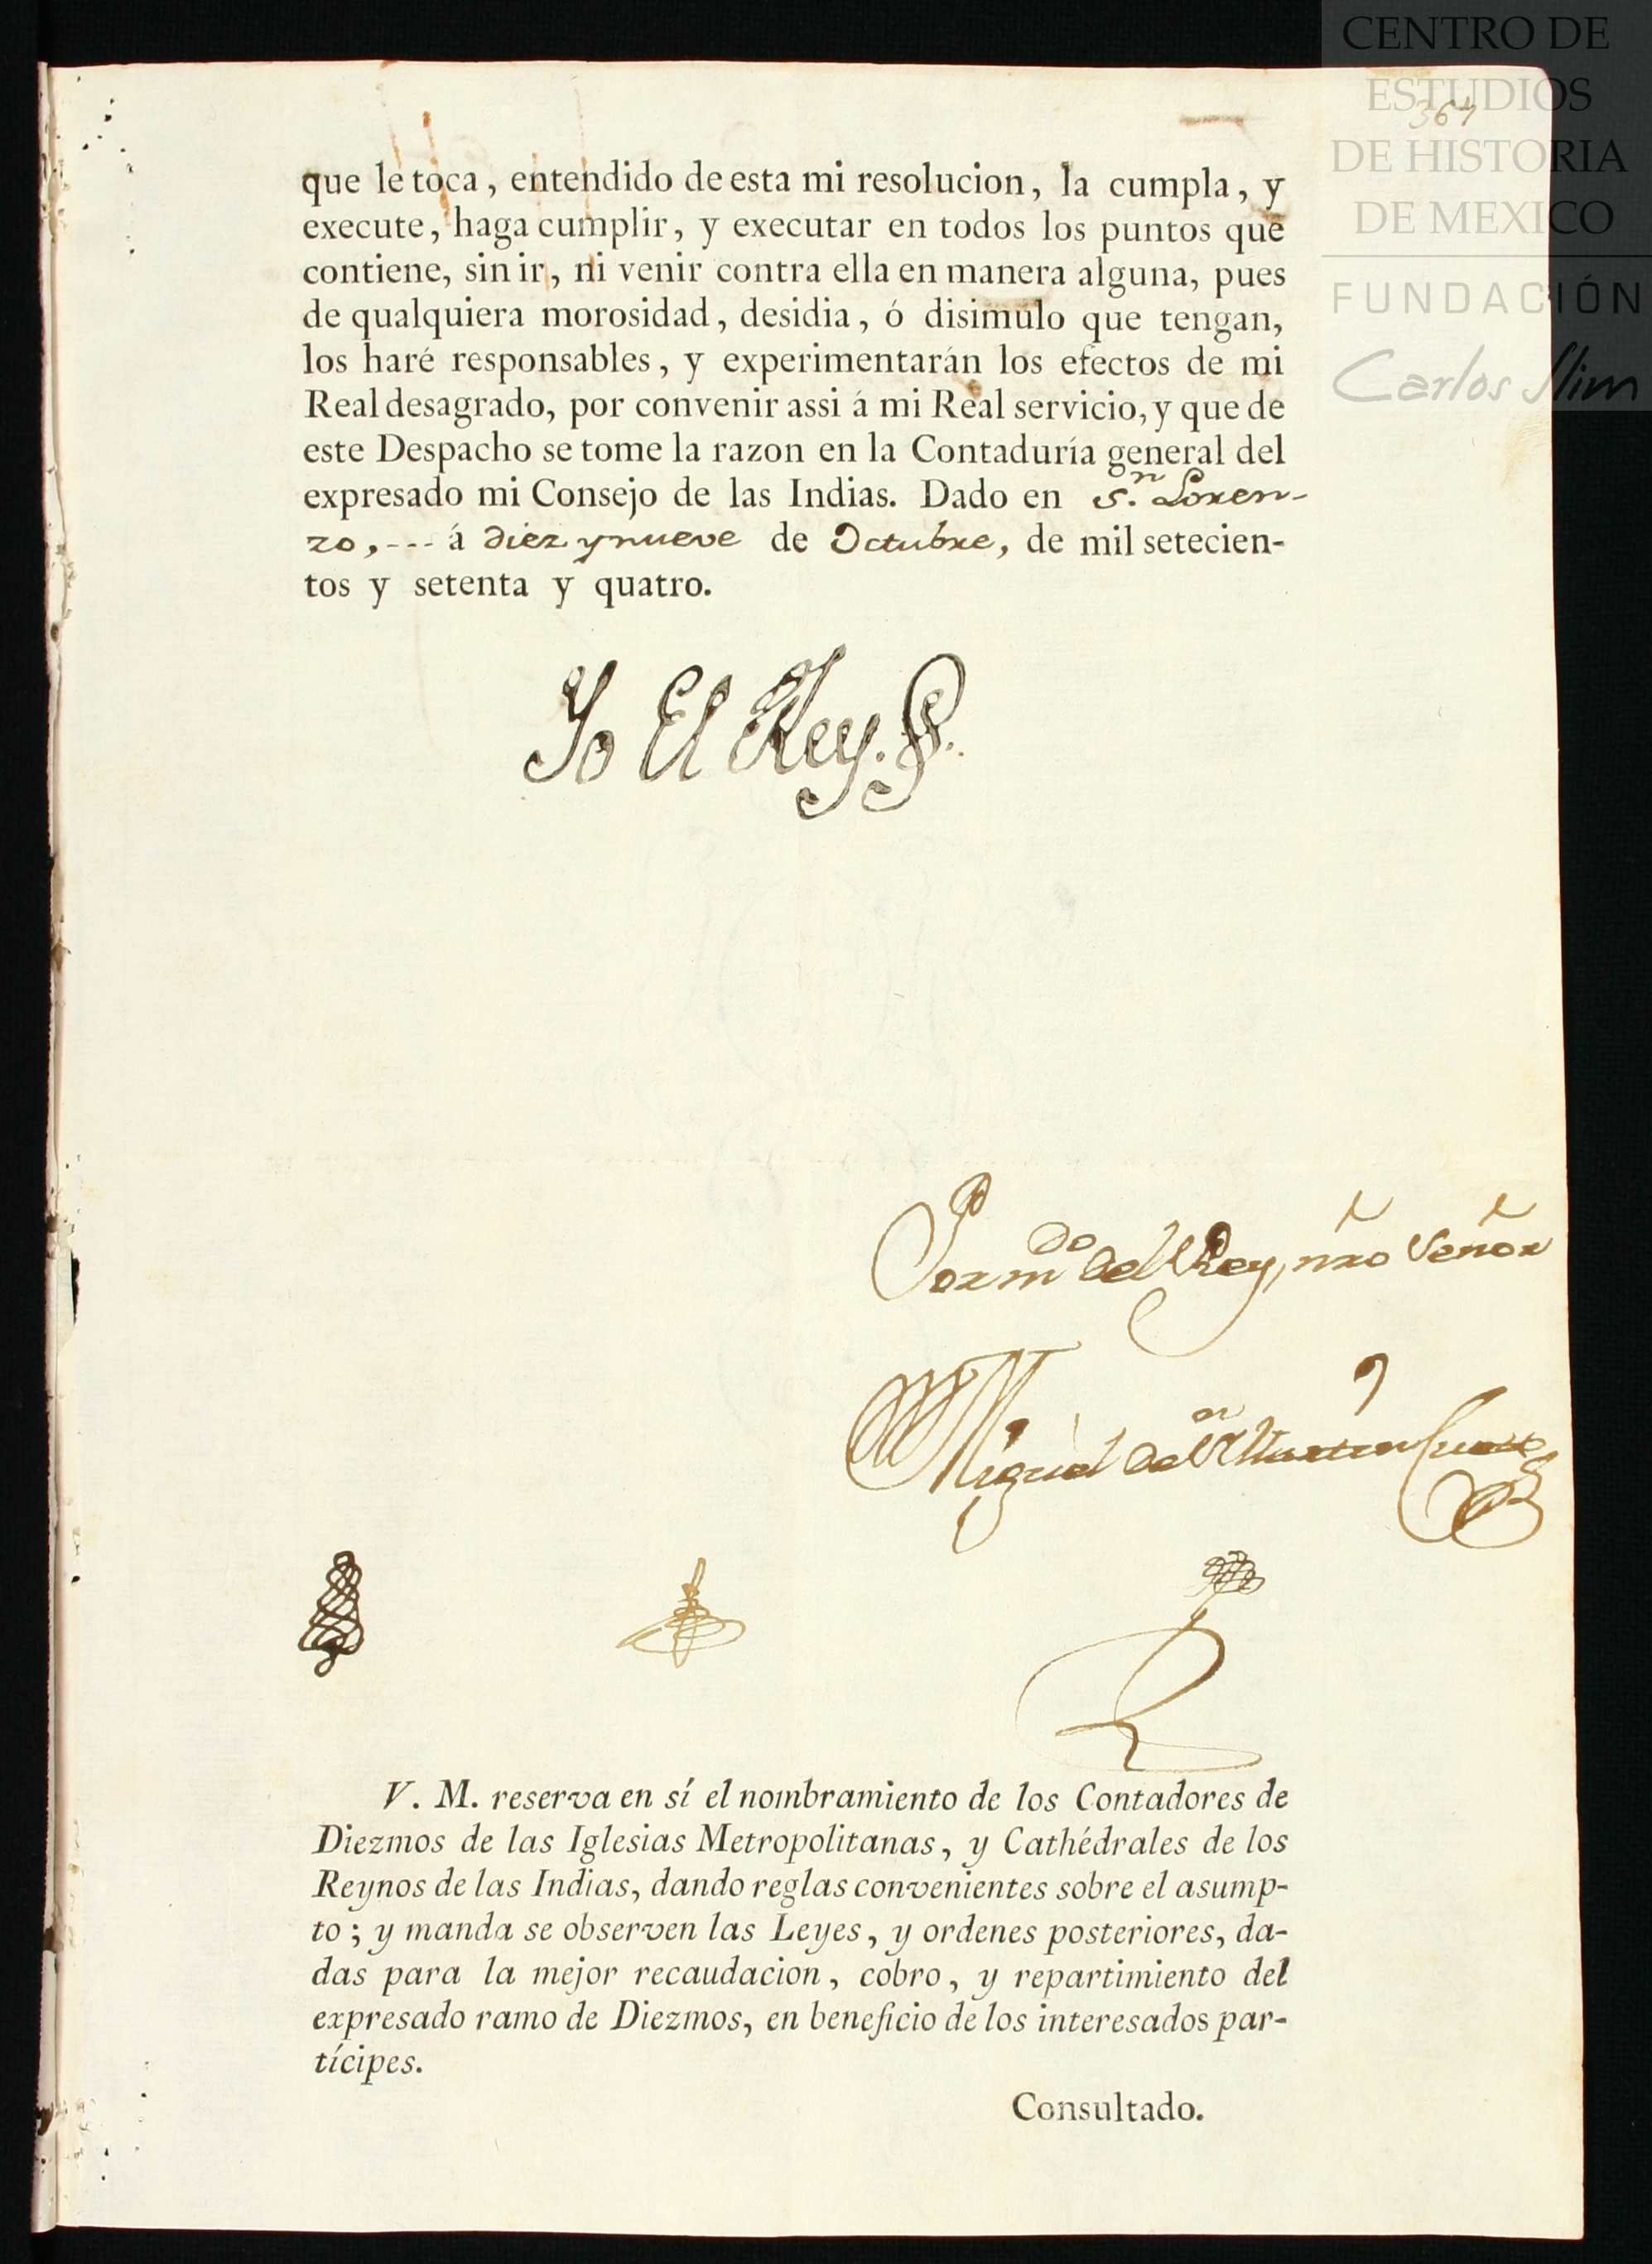 CENTRO DE
ESTUDIOS
DE HISTORIA
DE MEXICO
FUNDACIÓN
Carlos Slim
367
que le toca, entendido de esta mi resolucion, la cumpla, y
execute, haga cumplir, y executar en todos los puntos que
contiene, sin ir, ni venir contra ella en manera alguna, pues
de qualquiera morosidad, desidia, ó disimúlo que tengan,
los haré responsables, y experimentarán los efectos de mi
Real desagrado, por convenir assi á mi Real servicio, y que de
este Despacho se tome la razon en la Contaduría general del
expresado mi Consejo de las Indias. Dado en S.n Loren-
zo,--- á diez y nueve de Octubre, de mil setecien-
tos y setenta y quatro.
Yo El Rey.
Por m.do del Rey, nro Señor
Miguel de S.n Martin Cueto
V. M. reserva en sí el nombramiento de los Contadores de
Diezmos de las Iglesias Metropolitanas, y Cathédrales de los
Reynos de las Indias, dando reglas convenientes sobre el asump-
to; y manda se observen las Leyes, y ordenes posteriores, da-
das para la mejor recaudacion, cobro, y repartimiento del
expresado ramo de Diezmos, en beneficio de los interesados par-
tícipes.
Consultado.